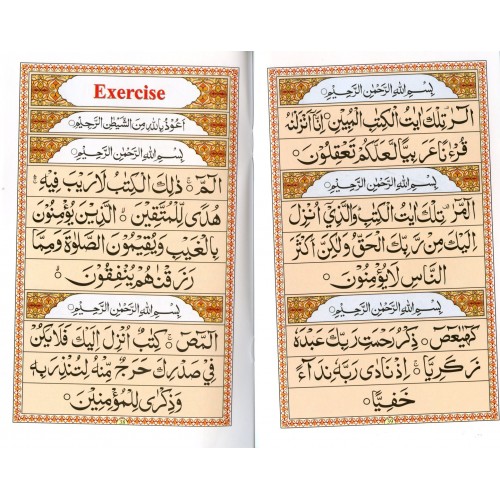 Exercise
اَعُوْذُ بِاللّٰهِ مِنَ الشَّيْطٰنِ الرَّجِيْمِ
بِسْمِ اللّٰهِ الرَّحْمٰنِ الرَّحِيْمِ
الٓمّٓ ۚ ذٰلِكَ الْكِتٰبُ لَا رَيْبَ فِيْهِ
هُدًى لِّلْمُتَّقِيْنَ ۙ الَّذِيْنَ يُؤْمِنُوْنَ
بِالْغَيْبِ وَيُقِيْمُوْنَ الصَّلٰوةَ وَمِمَّا
رَزَقْنٰهُمْ يُنْفِقُوْنَ
بِسْمِ اللّٰهِ الرَّحْمٰنِ الرَّحِيْمِ
الٓمّٓصٓ ۚ كِتٰبٌ اُنْزِلَ اِلَيْكَ فَلَا يَكُنْ
فِيْ صَدْرِكَ حَرَجٌ مِّنْهُ لِتُنْذِرَ بِهٖ
وَذِكْرٰى لِلْمُؤْمِنِيْنَ
بِسْمِ اللّٰهِ الرَّحْمٰنِ الرَّحِيْمِ
الٓرٰ تِلْكَ اٰيٰتُ الْكِتٰبِ الْمُبِيْنِ ۚ اِنَّآ اَنْزَلْنٰهُ
قُرْءٰنًا عَرَبِيًّا لَّعَلَّكُمْ تَعْقِلُوْنَ
بِسْمِ اللّٰهِ الرَّحْمٰنِ الرَّحِيْمِ
الٓمّٓرٰ تِلْكَ اٰيٰتُ الْكِتٰبِ وَالَّذِيْٓ اُنْزِلَ
اِلَيْكَ مِنْ رَّبِّكَ الْحَقُّ وَلٰكِنَّ اَكْثَرَ
النَّاسِ لَا يُؤْمِنُوْنَ
بِسْمِ اللّٰهِ الرَّحْمٰنِ الرَّحِيْمِ
كٓهٰيٰعٓصٓ ۚ ذِكْرُ رَحْمَتِ رَبِّكَ عَبْدَهٗ
زَكَرِيَّا ۚ اِذْ نَادٰى رَبَّهٗ نِدَآءً
خَفِيًّا